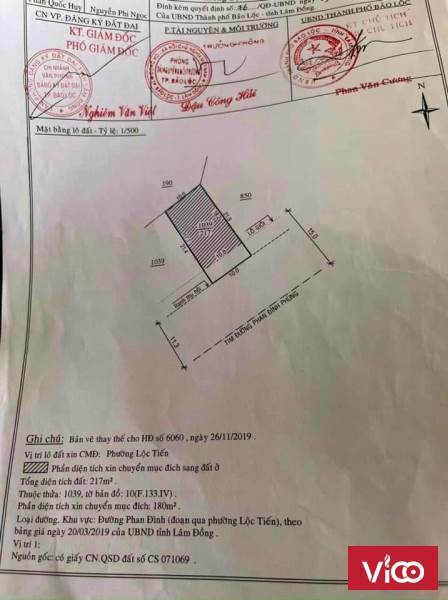 Phan Quốc Huy
Nguyễn Phi Ngọc
CN VP. ĐĂNG KÝ ĐẤT ĐAI
KT. GIÁM ĐỐC
PHÓ GIÁM ĐỐC
Nghiêm Văn Việt
P.TÀI NGUYÊN & MÔI TRƯỜNG
TRƯỞNG PHÒNG
Đậu Công Hải
Đính kèm quyết định số. 76 /QĐ-UBND
Của UBND Thành phố Bảo Lộc - tỉnh Lâm Đồng
UBND THÀNH PHỐ BẢO LỘC
KT CHỦ TỊCH
CHỦ TỊCH
Phan Văn Cương
Mặt bằng lô đất - Tỷ lệ: 1/500
190
10.0
850
1039
1039
21.4
10.0
10.0
LỘ GIỚI
15.0
11.3
TIM ĐƯỜNG PHAN ĐÌNH PHÙNG
Ghi chú: Bản vẽ thay thế cho HĐ số 6060 , ngày 26/11/2019 .
Vị trí lô đất xin CMĐ: Phường Lộc Tiến
Phần diện tích xin chuyển mục đích sang đất ở
Tổng diện tích đất: 217m² .
Thuộc thửa: 1039, tờ bản đồ: 10(F.133.IV) .
Phần diện tích xin chuyển mục đích: 180m² .
Loại đường, Khu vực: Đường Phan Đình (đoạn qua phường Lộc Tiến), theo
bảng giá ngày 20/03/2019 của UBND tỉnh Lâm Đồng .
Vị trí 1:
Nguồn gốc: có giấy CN.QSD đất số CS 071069 .
ViCO